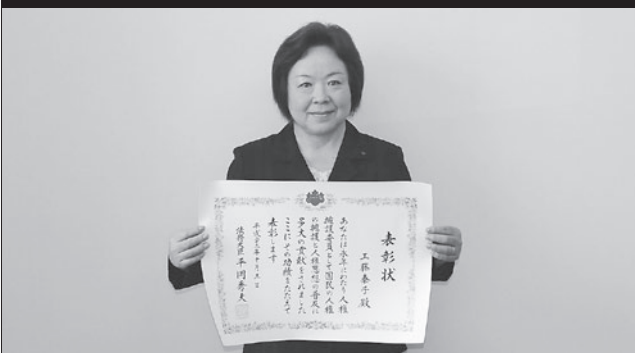 表彰状
工藤泰子殿
あなたは永年にわたり人権
擁護委員として国民の人権
の擁護と人権思想の普及に
多大の貢献をされました
ここにその功績をたたえて
表彰します
法務大臣 平岡秀夫